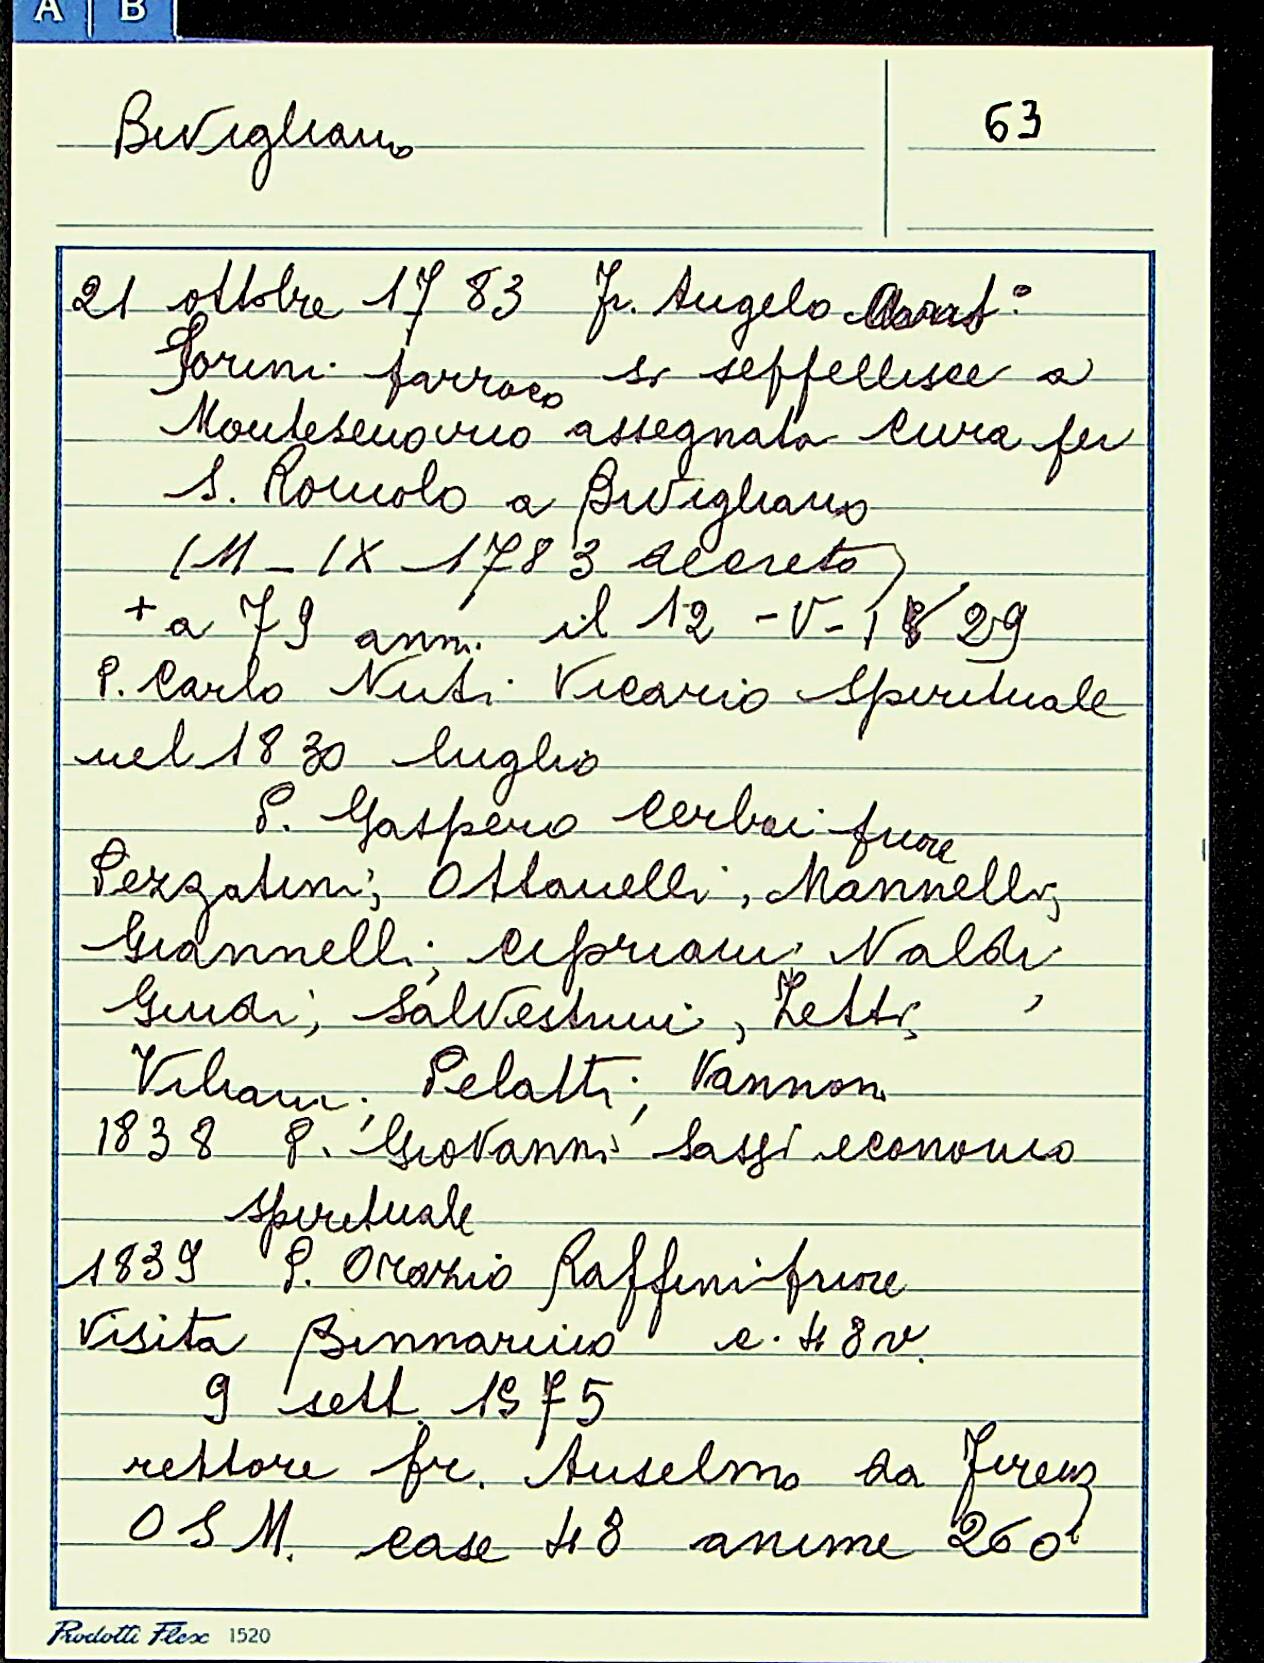 A B
Bivigliano
63
21 ottobre 1783 Fr. Angelo
Forini parroco si seppellisce a
Montesenario assegnata cura per
S. Romolo a Bivigliano
(11 - IX - 1783 decreto)
+ a 79 anni il 12 - V - 1829
P. Carlo Nuti Vicario Spirituale
nel 1830 luglio
P. Gaspero Cerbai priore
Pezzatini; Ottanelli, Mannelli,
Giannelli; Cipriani Naldi,
Guidi; Salvestrini, Zetti;
Viliani; Pelatti; Vannoni
1838 P. Giovanni Sassi economo
spirituale
1839 P. Orazio Raffini priore
Visita c. 48v.
9 sett. 1575
rettore fr. Anselmo da Firenz
OSM. case 48 anime 260
Prodotti Flex 1520